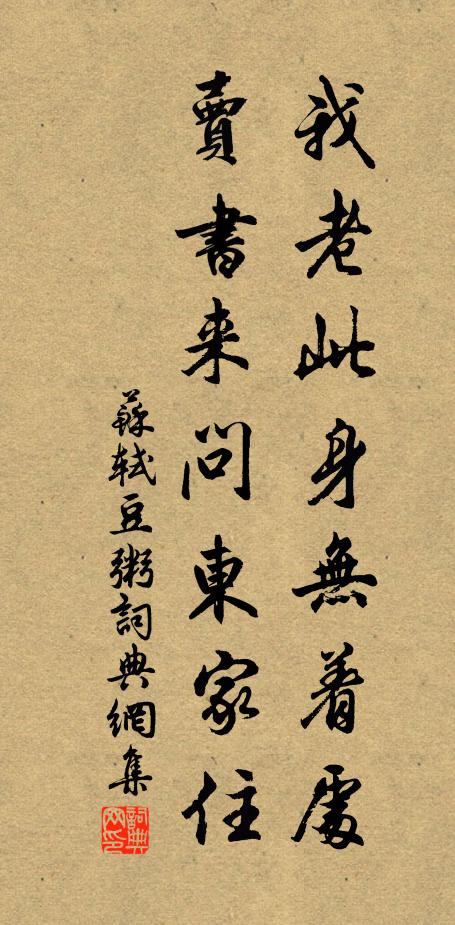 我老此身無着處
賣書来問東家住
蘇軾豆粥詞典網集
詞典網印